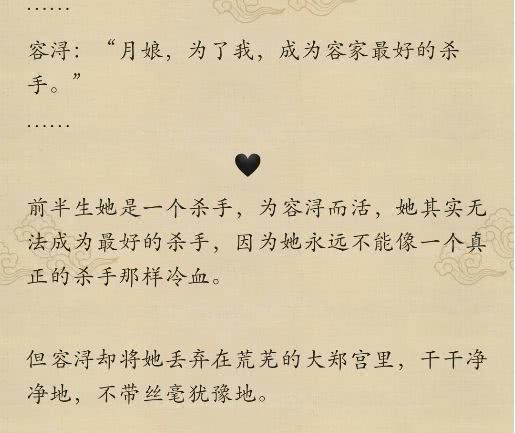 ......
容浔：“月娘，为了我，成为容家最好的杀
手。”
......
前半生她是一个杀手，为容浔而活，她其实无
法成为最好的杀手，因为她永远不能像一个真
正的杀手那样冷血。
但容浔却将她丢弃在荒芜的大郑宫里，干干净
净地，不带丝毫犹豫地。